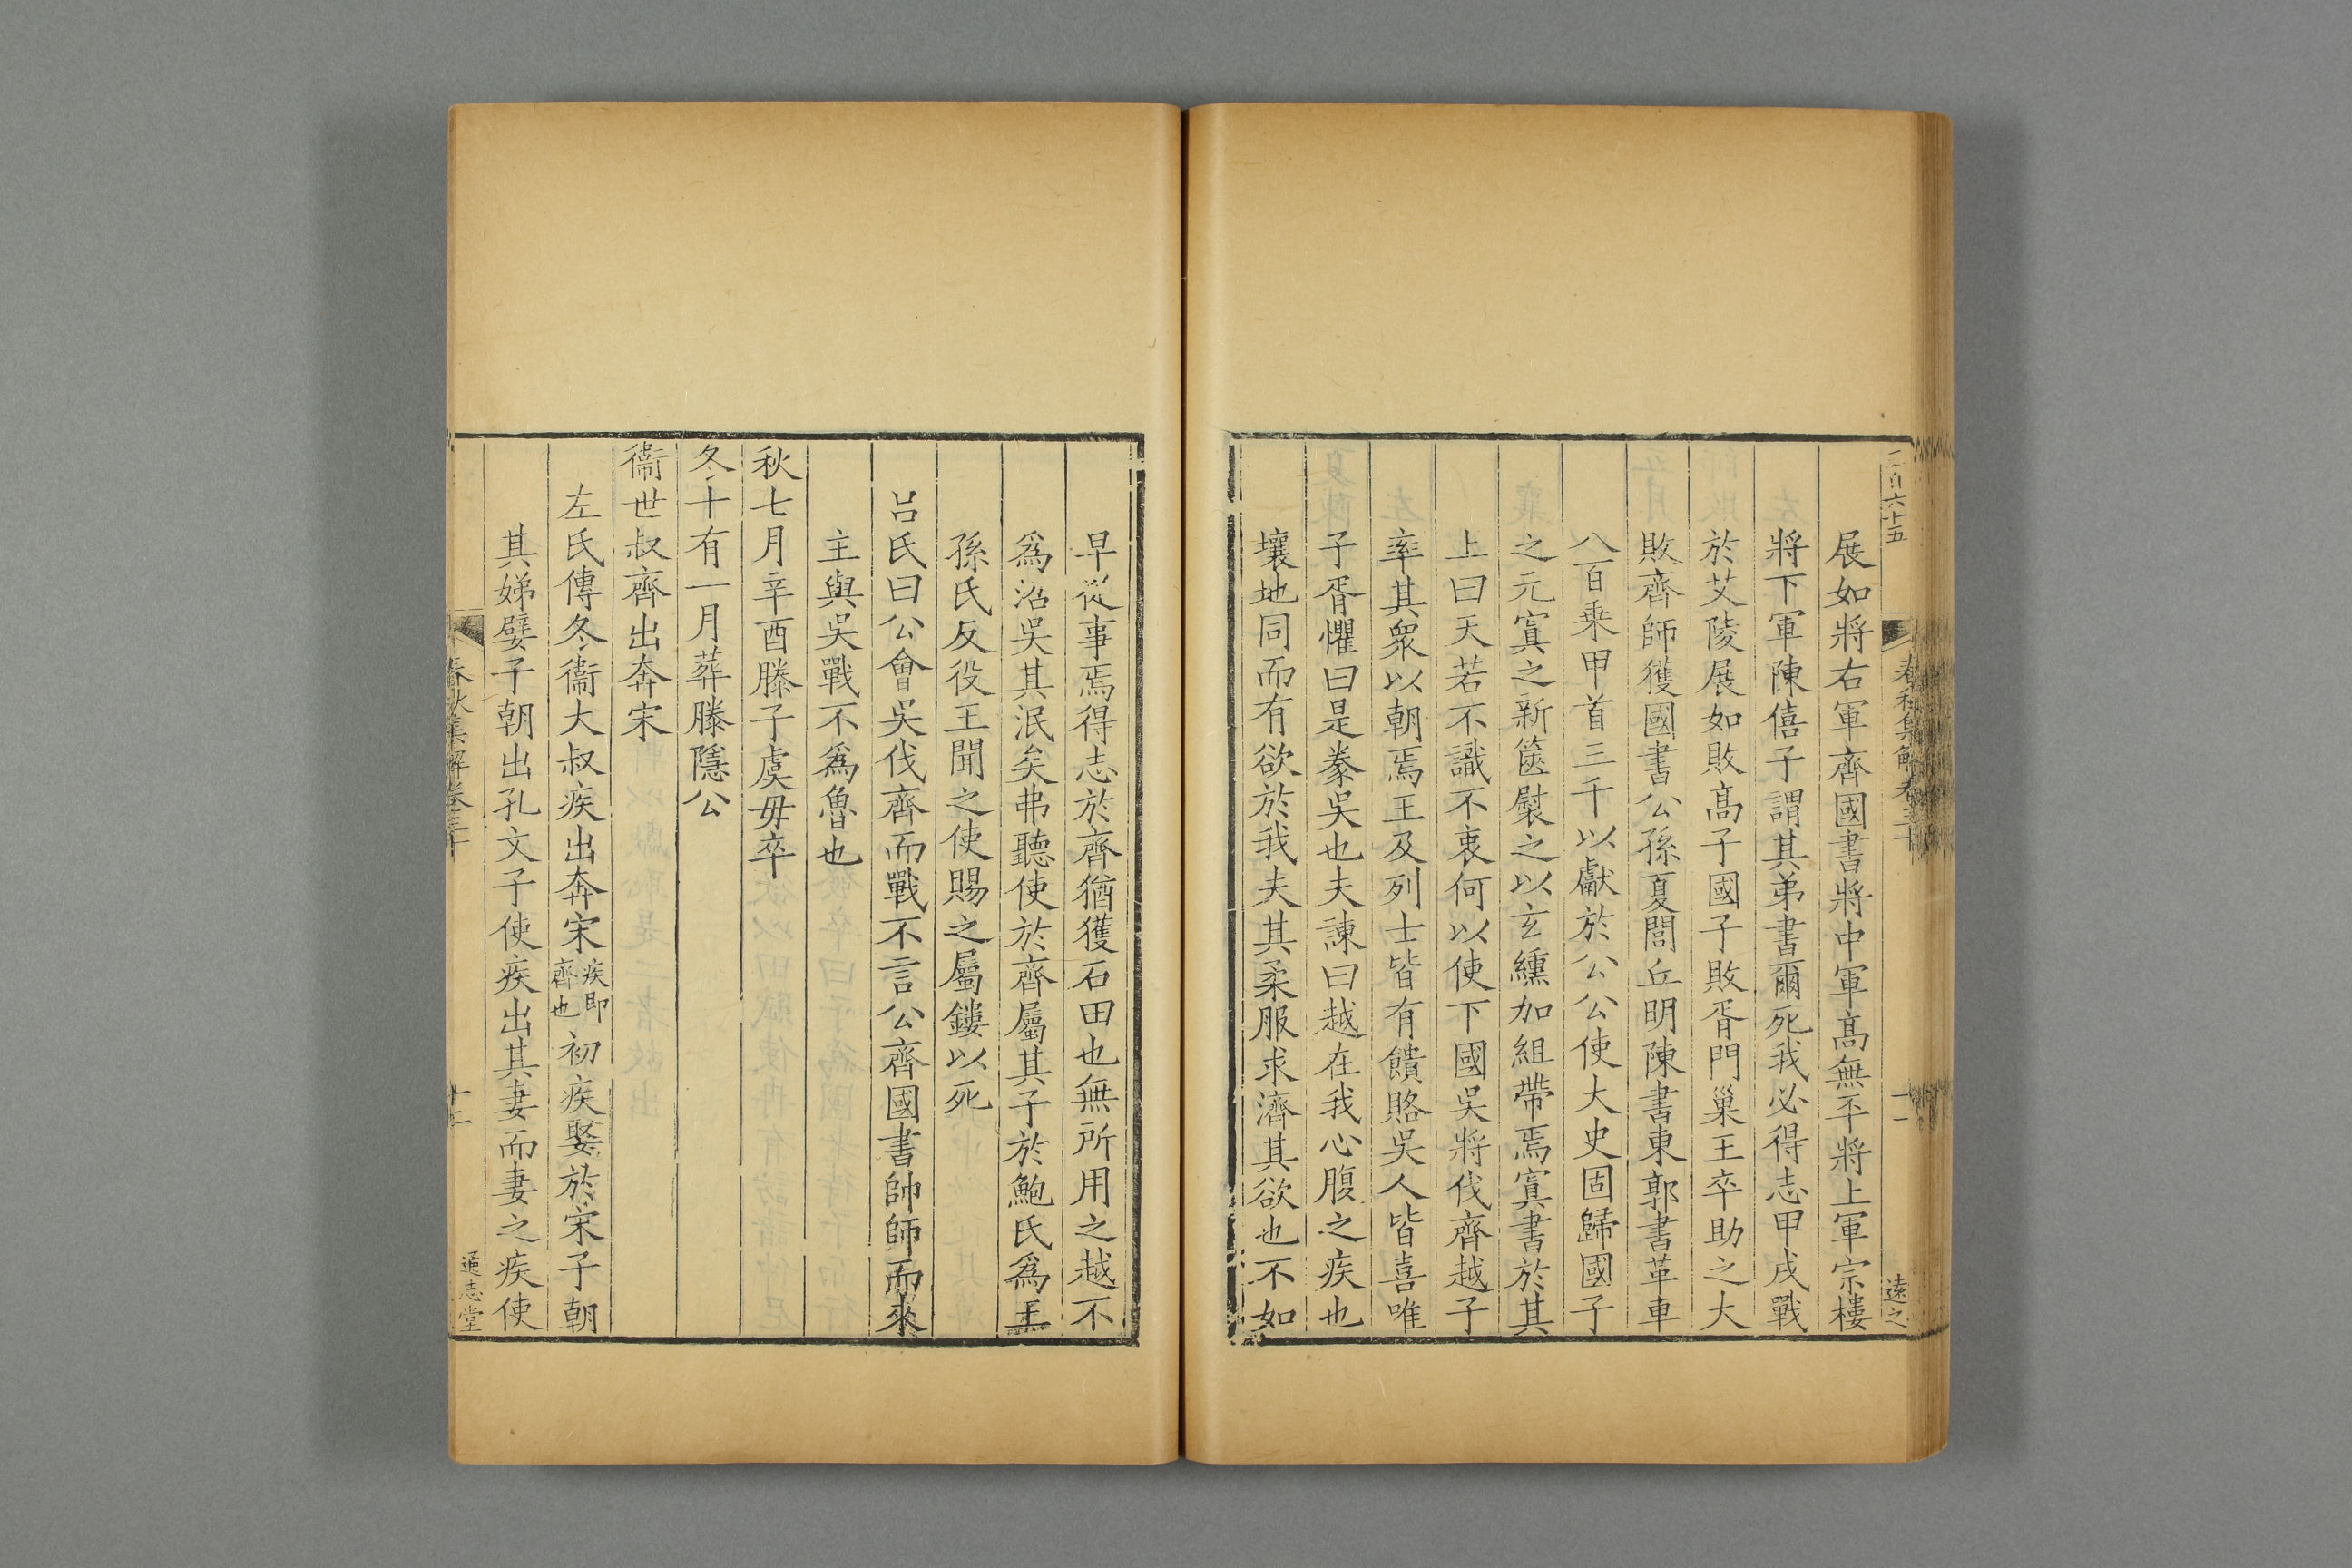 二百六十五
春秋集解卷三十
十一
遠之
展如將右軍齊國書將中軍高無㔻將上軍宗樓
將下軍陳僖子謂其弟書爾死我必得志甲戌戰
於艾陵展如敗高子國子敗胥門巢王卒助之大
敗齊師獲國書公孫夏閭丘明陳書東郭書革車
八百乘甲首三千以獻於公公使大史固歸國子
之元寘之新篋褽之以玄纁加組帶焉寘書於其
上曰天若不識不衷何以使下國吳將伐齊越子
率其衆以朝焉王及列士皆有饋賂吳人皆喜唯
子胥懼曰是豢吳也夫諫曰越在我心腹之疾也
壤地同而有欲於我夫其柔服求濟其欲也不如
早從事焉得志於齊猶獲石田也無所用之越不
爲沼吳其泯矣弗聽使於齊屬其子於鮑氏爲王
孫氏反役王聞之使賜之屬鏤以死
吕氏曰公會吳伐齊而戰不言公齊國書帥師而來
主與吳戰不爲魯也
秋七月辛酉滕子虞毋卒
冬十有一月葬滕隱公
衞世叔齊出奔宋
左氏傳冬衞大叔疾出奔宋疾即齊也初疾娶於宋子朝
其娣嬖子朝出孔文子使疾出其妻而妻之疾使
春秋集解卷三十
十二
通志堂